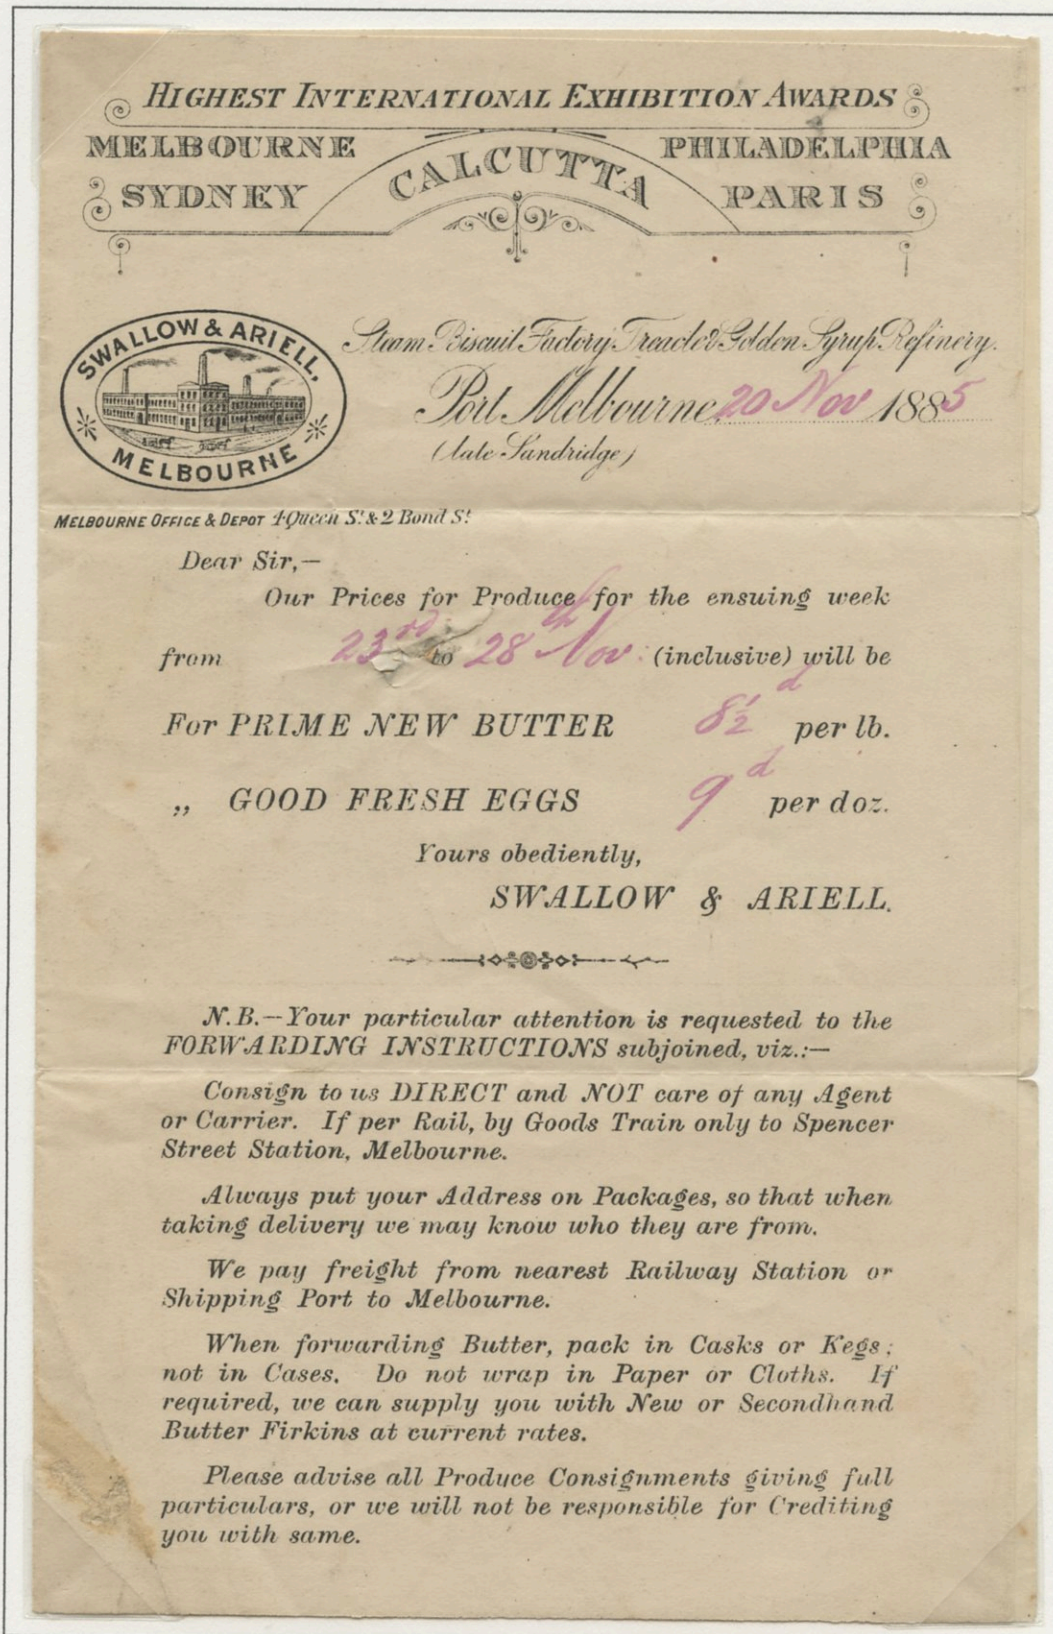 HIGHEST INTERNATIONAL EXHIBITION AWARDS
MELBOURNE CALCUTTA PHILADELPHIA
SYDNEY PARIS
SWALLOW & ARIELL,
MELBOURNE
Steam Biscuit Factory Treacle & Golden Syrup Refinery.
Port Melbourne 20 Nov 1885
(late Sandridge)
MELBOURNE OFFICE & DEPOT 1 Queen St. & 2 Bond St.
Dear Sir,—
Our Prices for Produce for the ensuing week
from 23rd to 28th Nov. (inclusive) will be
For PRIME NEW BUTTER 8½d per lb.
„ GOOD FRESH EGGS 9d per doz.
Yours obediently,
SWALLOW & ARIELL.
N.B.—Your particular attention is requested to the
FORWARDING INSTRUCTIONS subjoined, viz.:—
Consign to us DIRECT and NOT care of any Agent
or Carrier. If per Rail, by Goods Train only to Spencer
Street Station, Melbourne.
Always put your Address on Packages, so that when
taking delivery we may know who they are from.
We pay freight from nearest Railway Station or
Shipping Port to Melbourne.
When forwarding Butter, pack in Casks or Kegs;
not in Cases. Do not wrap in Paper or Cloths. If
required, we can supply you with New or Secondhand
Butter Firkins at current rates.
Please advise all Produce Consignments giving full
particulars, or we will not be responsible for Crediting
you with same.